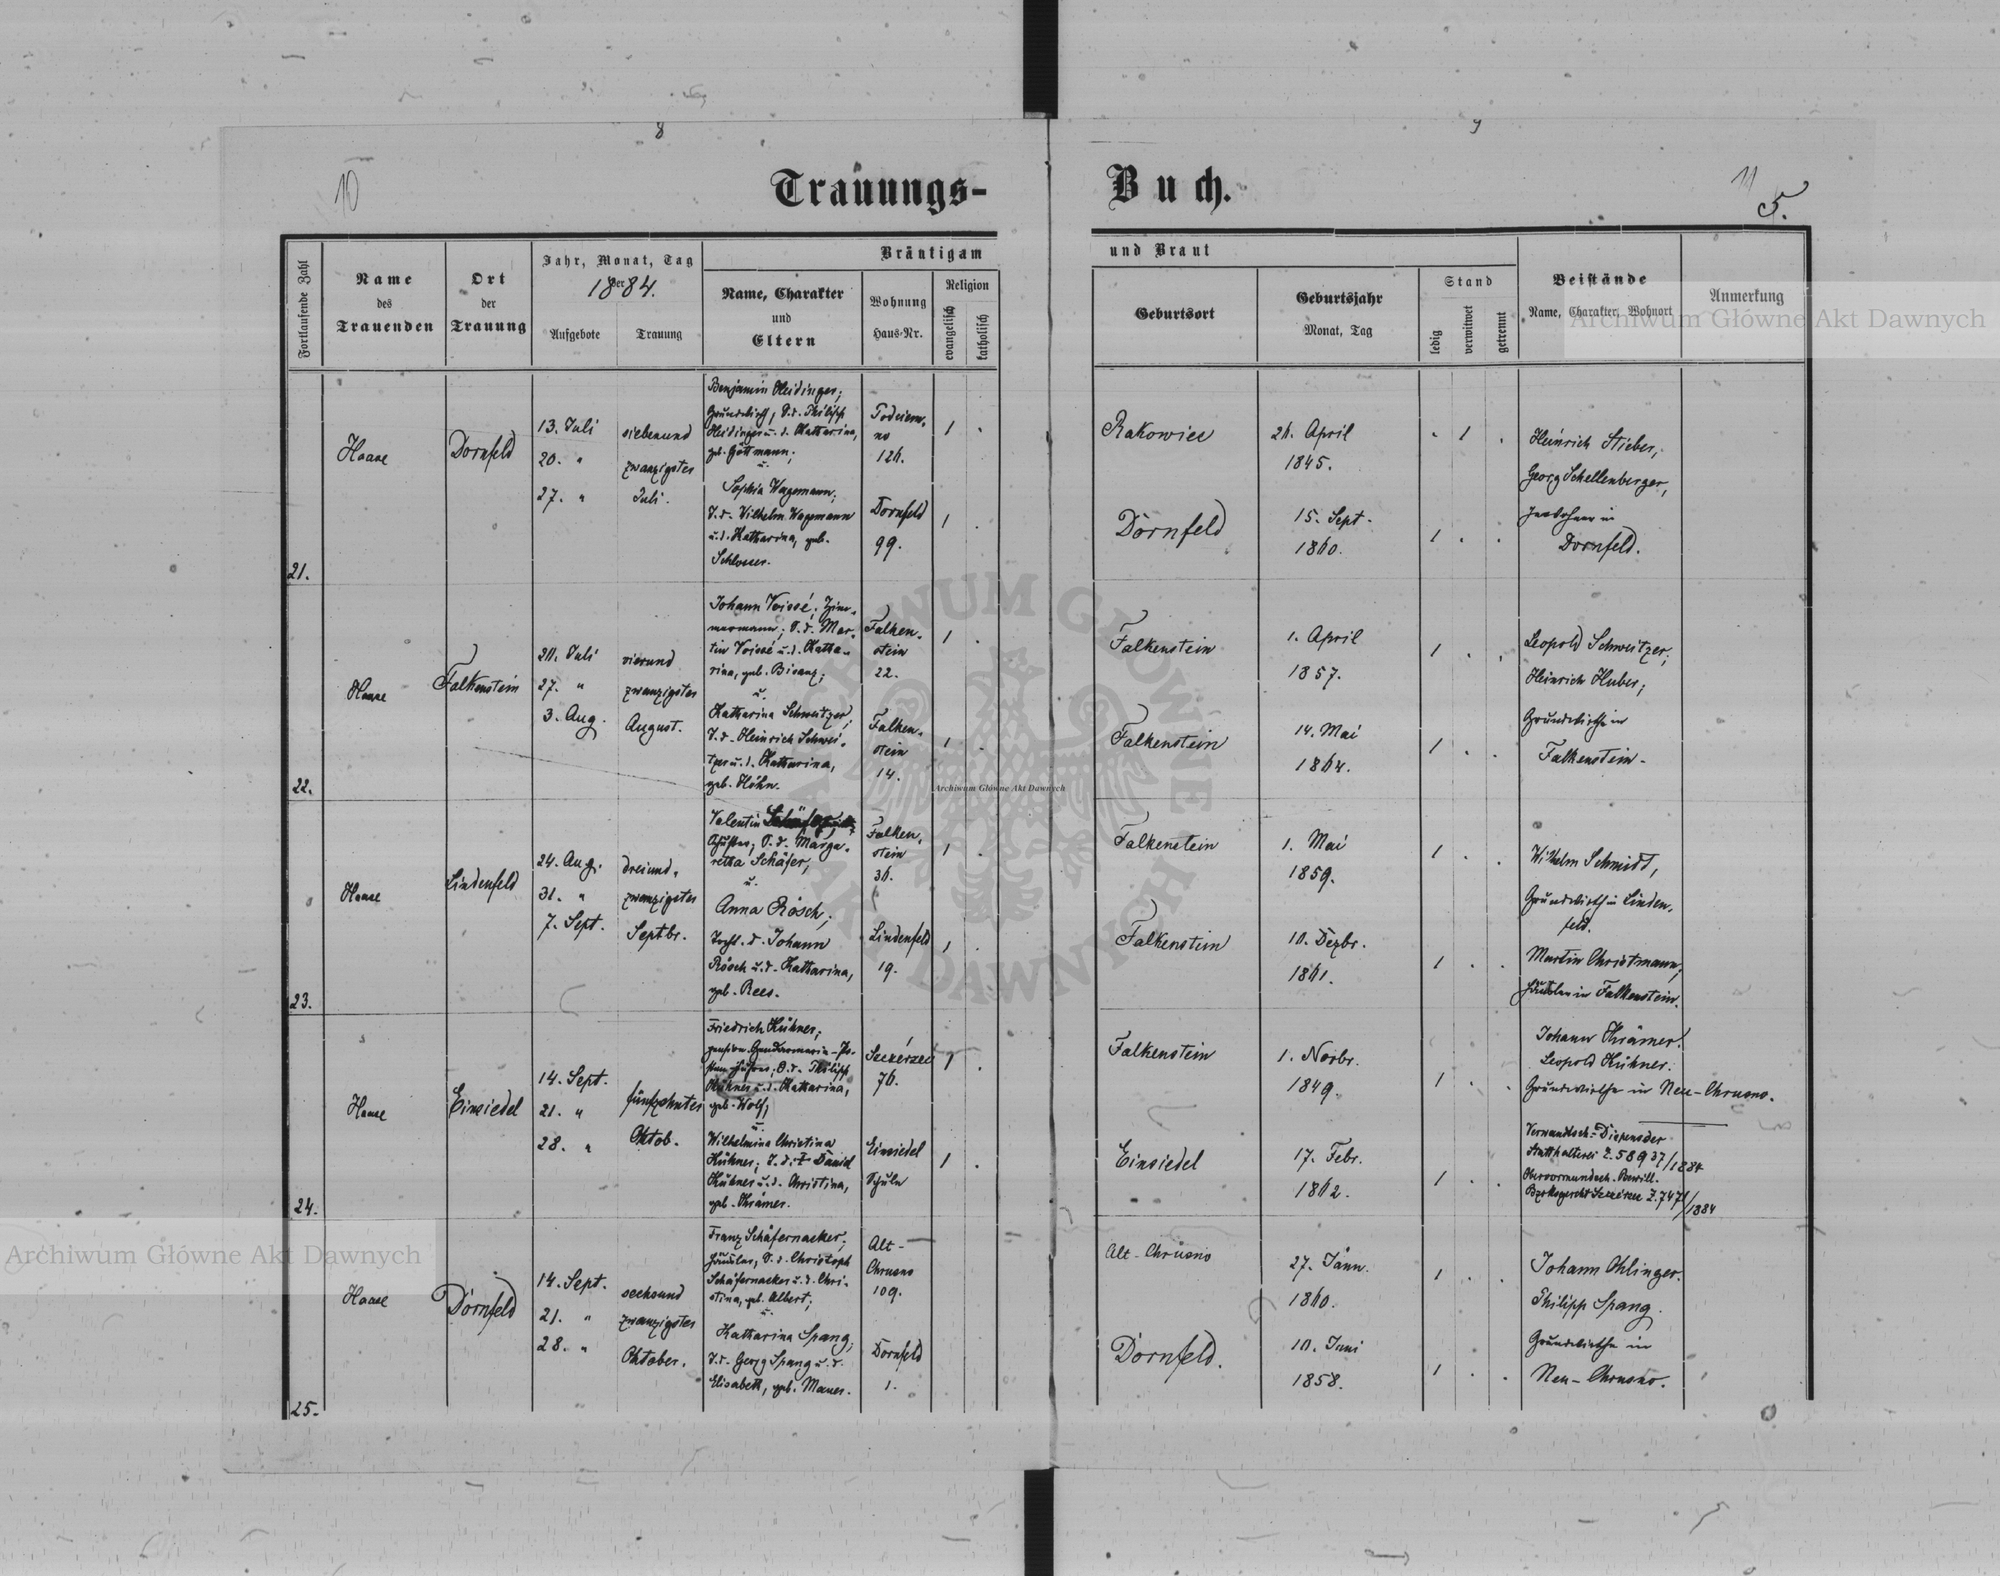 8
9
10
11
5.
Trauungs-
Buch.
Fortlaufende Zahl
Name
des
Trauenden
Ort
der
Trauung
Jahr, Monat, Tag
der
1884.
Aufgebote
Trauung
Bräutigam
Name, Charakter
und
Eltern
Wohnung
Haus-Nr.
Religion
evangelisch
katholisch
und Braut
Geburtsort
Geburtsjahr
Monat, Tag
Stand
ledig
verwitwet
getrennt
Beistände
Name, Charakter, Wohnort
Anmerkung
21.
Haase
Dornfeld
13. Juli
20. "
27. "
siebenund
zwanzigster
Juli.
Benjamin Heidinger;
Grundwirth, S. d. Philipp
Heidinger u. d. Katharina,
geb. Göttmann;
u.
Sophia Wagemann;
T. d. Wilhelm Wagemann
u. d. Katharina, geb.
Schlosser.
126.
Dornfeld
99.
Rakowiec
26. April
1845.
Dornfeld
15. Sept.
1860.
Heinrich Stieber,
Georg Schellenberger,
Inwohner in
Dornfeld.
22.
Haase
Falkenstein
20. Juli
27. "
3. Aug.
vierund
zwanzigster
August.
Johann Voissé, Zim-
mermann; S. d. Mar-
tin Voissé u. d. Katha-
rina, geb. Bisanz;
u.
Katharina Schweitzer,
T. d. Heinrich Schwei-
tzer u. d. Katharina,
geb. Höhn.
Falken-
stein
22.
Falken-
stein
14.
Falkenstein
1. April
1857.
Falkenstein
14. Mai
1864.
Leopold Schweitzer;
Heinrich Huber;
Grundwirthe in
Falkenstein.
23.
Haase
Lindenfeld
24. Aug.
31. "
7. Sept.
dreiund-
zwanzigster
Septbr.
Valentin Schäfer,
S. d. Marga-
retha Schäfer,
u.
Anna Rösch;
Tocht. d. Johann
Rösch u. d. Katharina,
geb. Rees.
Falken-
stein
36.
Lindenfeld
19.
Falkenstein
1. Mai
1859.
Falkenstein
10. Dezbr.
1861.
Wilhelm Schmidt,
Grundwirth in Linden-
feld.
Martin Christmann,
Häusler in Falkenstein.
24.
Haase
Einsiedel
14. Sept.
21. "
28. "
fünfzehnter
Oktob.
Friedrich Kühner;
S. d. Philipp
Kühner u. d. Katharina,
geb. Wolf;
u.
Wilhelmina Christina
Kühner; T. d. † Daniel
Kühner u. d. Christina,
geb. Krämer.
76.
Einsiedel
Schule
Falkenstein
1. Novbr.
1849.
Einsiedel
17. Febr.
1862.
Johann Krämer.
Leopold Kühner.
Grundwirthe in Neu-Chrusno.
Verwandtsch.-Dispens der
Statthalterei Z. 58937/1884
Obervormundsch. Bewill.
Bezirksgericht Szczerzec Z. 7471/1884
25.
Haase
Dornfeld
14. Sept.
21. "
28. "
sechsund
zwanzigster
Oktober.
Franz Schäfernacker;
Häusler, S. d. Christoph
Schäfernacker u. d. Chri-
stina, geb. Albert;
u.
Katharina Spang;
T. d. Georg Spang u. d.
Elisabeth, geb. Mauer.
Alt-
Chrusno
109.
Dornfeld
1.
Alt-Chrusno
27. Jänn.
1860.
Dornfeld.
10. Juni
1858.
Johann Ohlinger.
Philipp Spang.
Grundwirthe in
Neu-Chrusno.
Archiwum Główne Akt Dawnych
Archiwum Główne Akt Dawnych
Archiwum Główne Akt Dawnych
ARCHIWUM GŁÓWNE AKT DAWNYCH